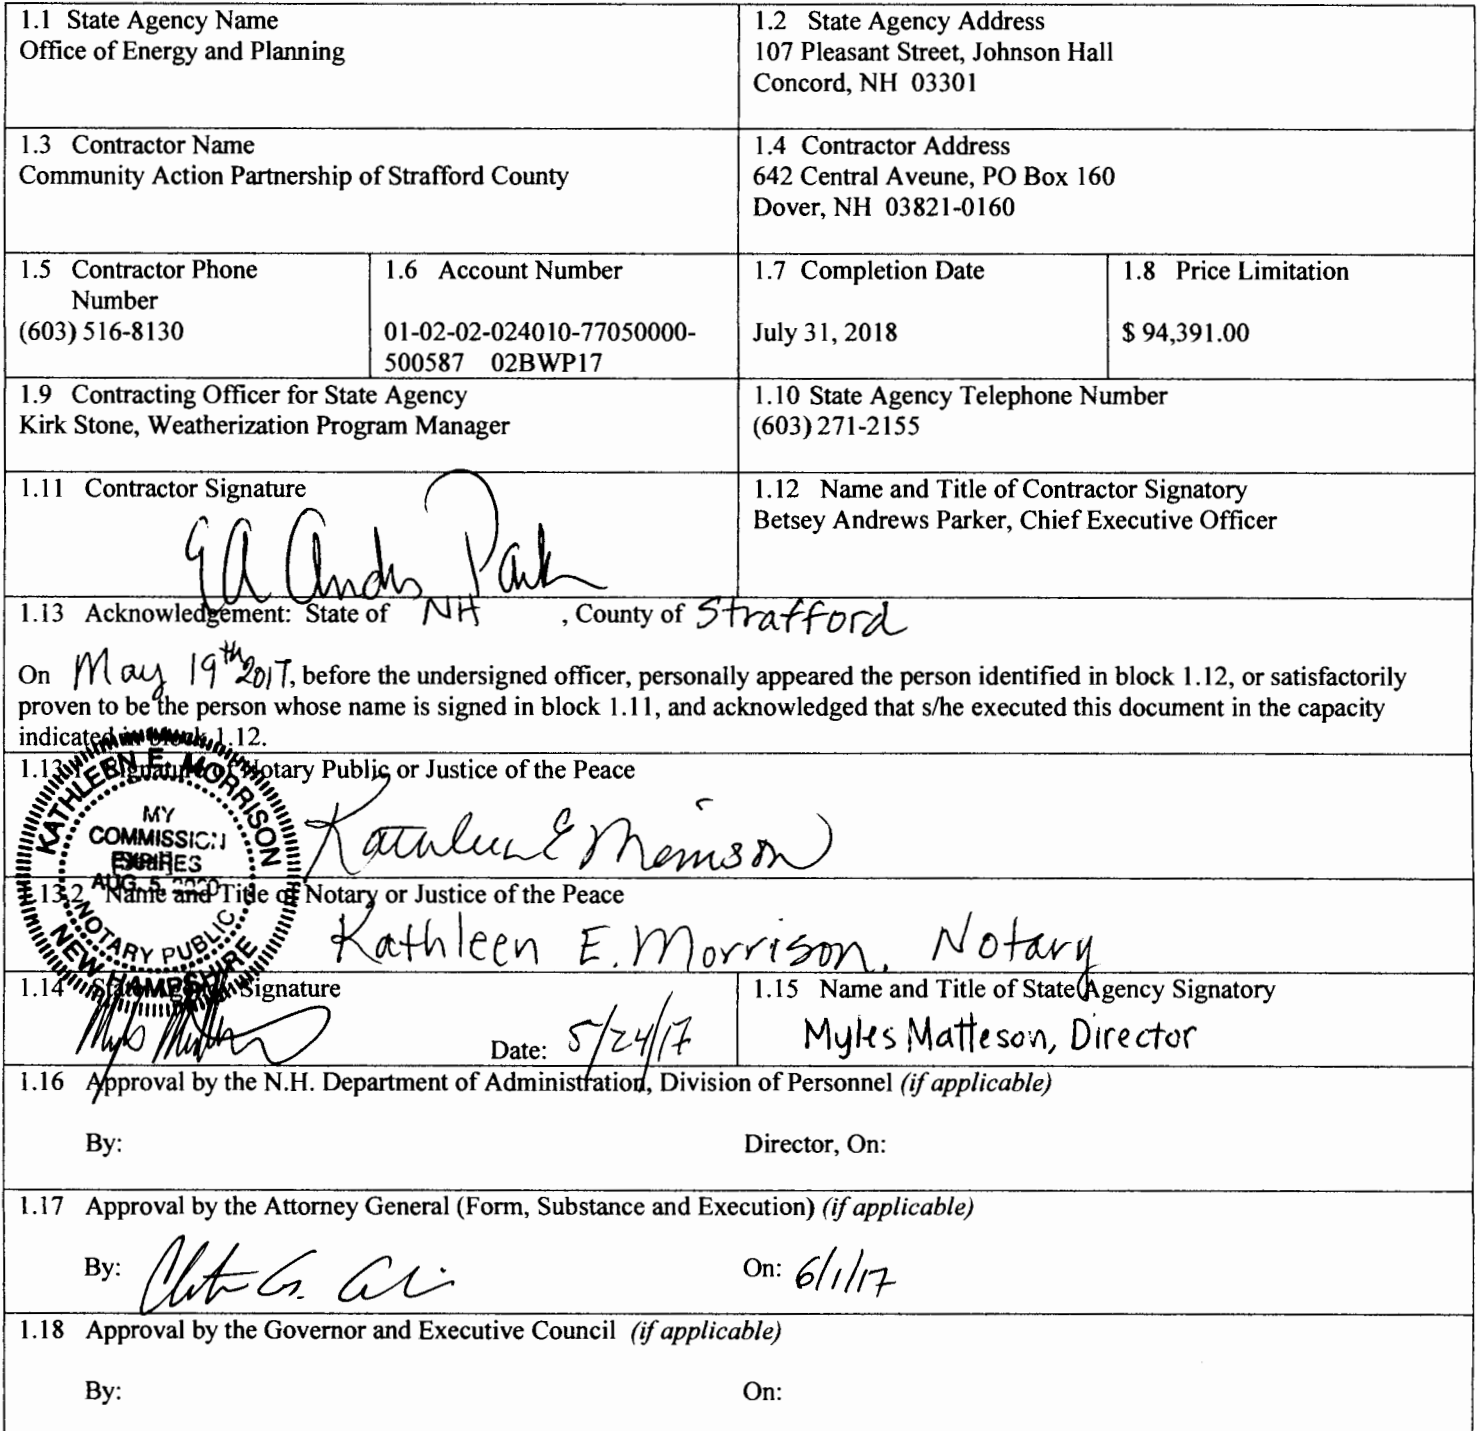 1.1 State Agency Name
Office of Energy and Planning
1.2 State Agency Address
107 Pleasant Street, Johnson Hall
Concord, NH 03301
1.3 Contractor Name
Community Action Partnership of Strafford County
1.4 Contractor Address
642 Central Aveune, PO Box 160
Dover, NH 03821-0160
1.5 Contractor Phone
Number
(603) 516-8130
1.6 Account Number
01-02-02-024010-77050000-
500587 02BWP17
1.7 Completion Date
July 31, 2018
1.8 Price Limitation
$ 94,391.00
1.9 Contracting Officer for State Agency
Kirk Stone, Weatherization Program Manager
1.10 State Agency Telephone Number
(603) 271-2155
1.11 Contractor Signature
1.12 Name and Title of Contractor Signatory
Betsey Andrews Parker, Chief Executive Officer
1.13 Acknowledgement: State of NH , County of Strafford
On May 19th 2017, before the undersigned officer, personally appeared the person identified in block 1.12, or satisfactorily
proven to be the person whose name is signed in block 1.11, and acknowledged that s/he executed this document in the capacity
indicated in block 1.12.
1.13.1 Signature of Notary Public or Justice of the Peace
Kathleen E Morrison
KATHLEEN E. MORRISON
MY
COMMISSION
EXPIRES
AUG. 5, 2020
NOTARY PUBLIC
NEW HAMPSHIRE
1.13.2 Name and Title of Notary or Justice of the Peace
Kathleen E. Morrison, Notary
1.14 State Agency Signature
Date: 5/24/17
1.15 Name and Title of State Agency Signatory
Myles Matteson, Director
1.16 Approval by the N.H. Department of Administration, Division of Personnel (if applicable)
By:
Director, On:
1.17 Approval by the Attorney General (Form, Substance and Execution) (if applicable)
By:
On: 6/1/17
1.18 Approval by the Governor and Executive Council (if applicable)
By:
On: